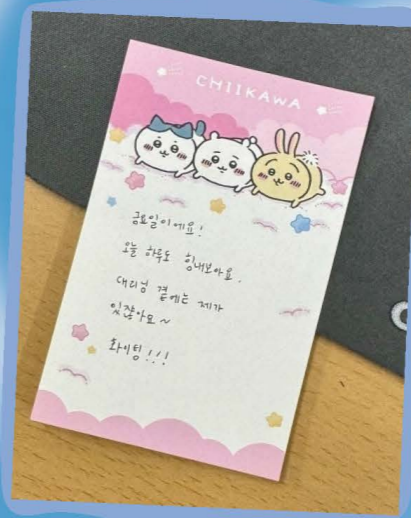 CHIIKAWA
금요일이에요!
오늘 하루도 힘내보아요.
대리님 곁에는 제가
있잖아요~
화이팅!!!